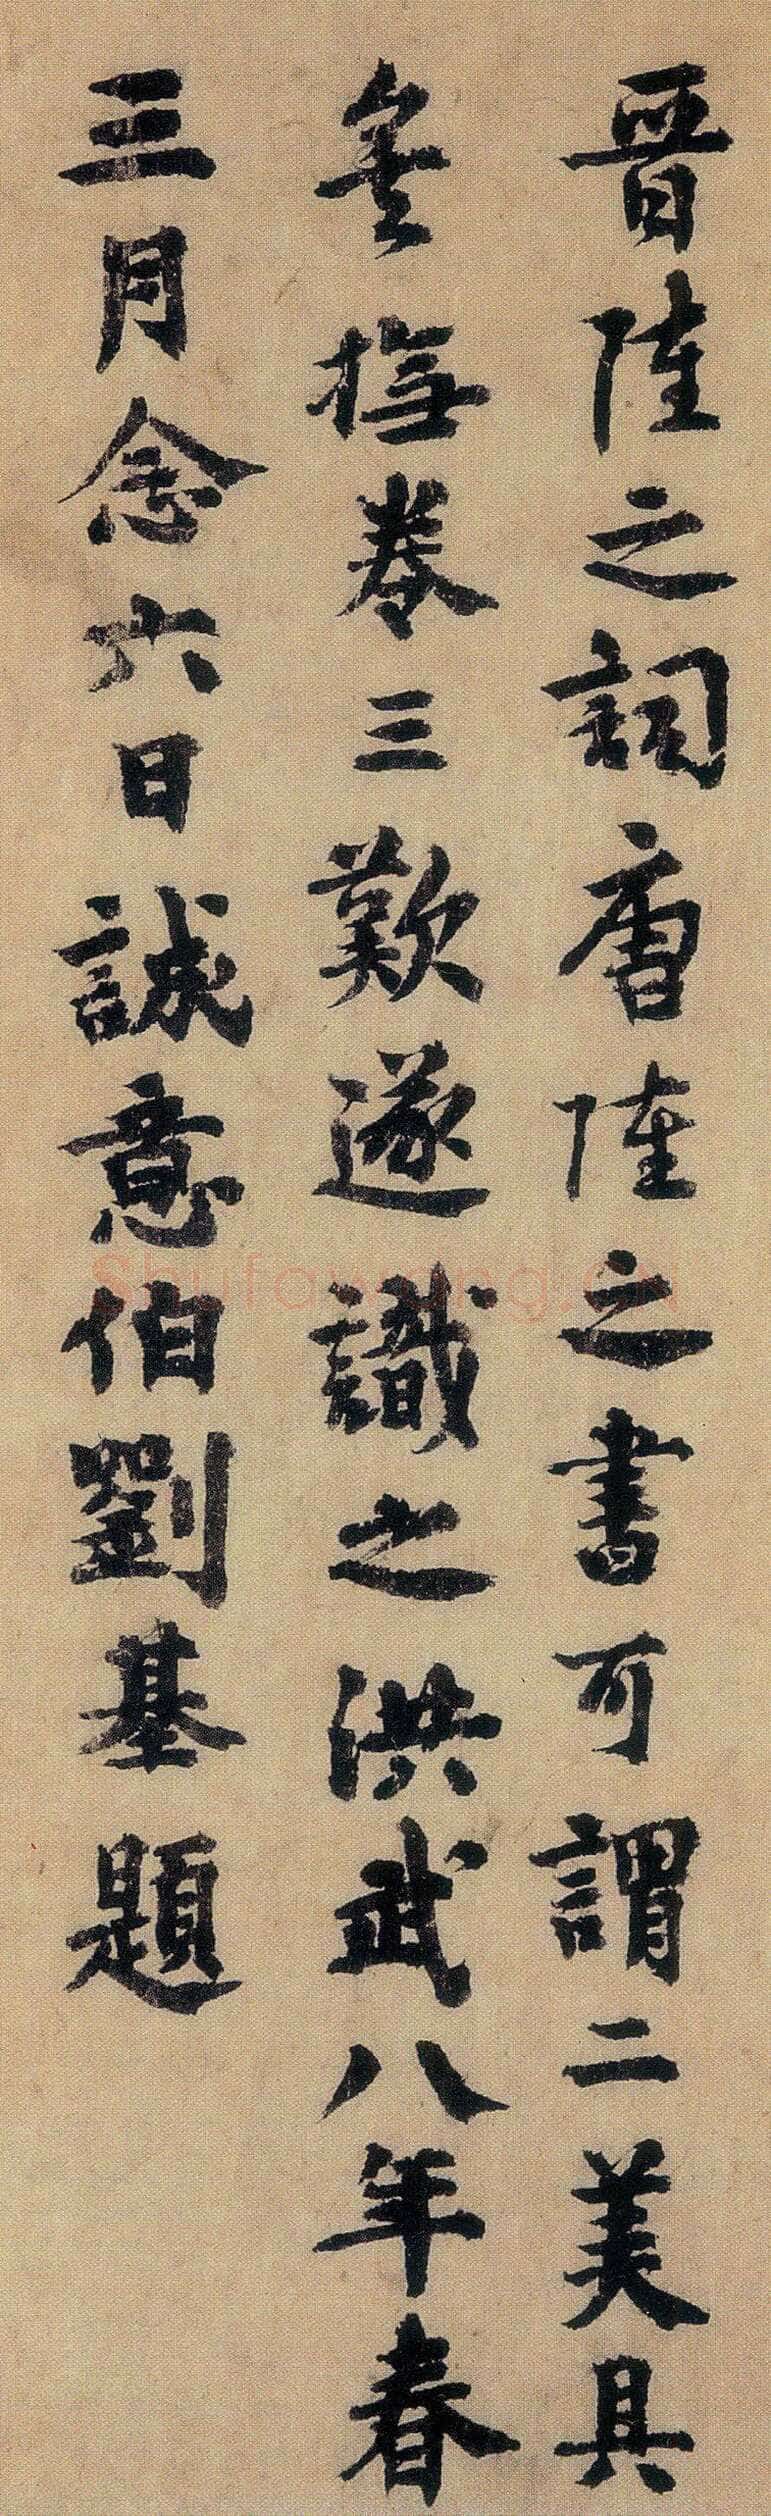 晉陸之詞唐陸之書可謂二美具
矣撫卷三歎遂識之洪武八年春
三月念六日誠意伯劉基題
Shufawang.CN